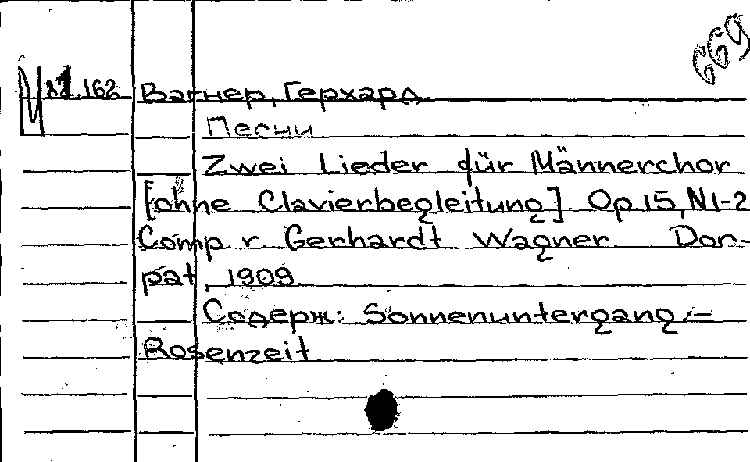 669
81.162 Вагнер, Герхард
Песни
Zwei Lieder für Männerchor
[ohne Clavierbegleitung] Op.15, N1-2
Comp v. Gerhardt Wagner. Dor-
pat, 1909
Содерж: Sonnenuntergang.—
Rosenzeit